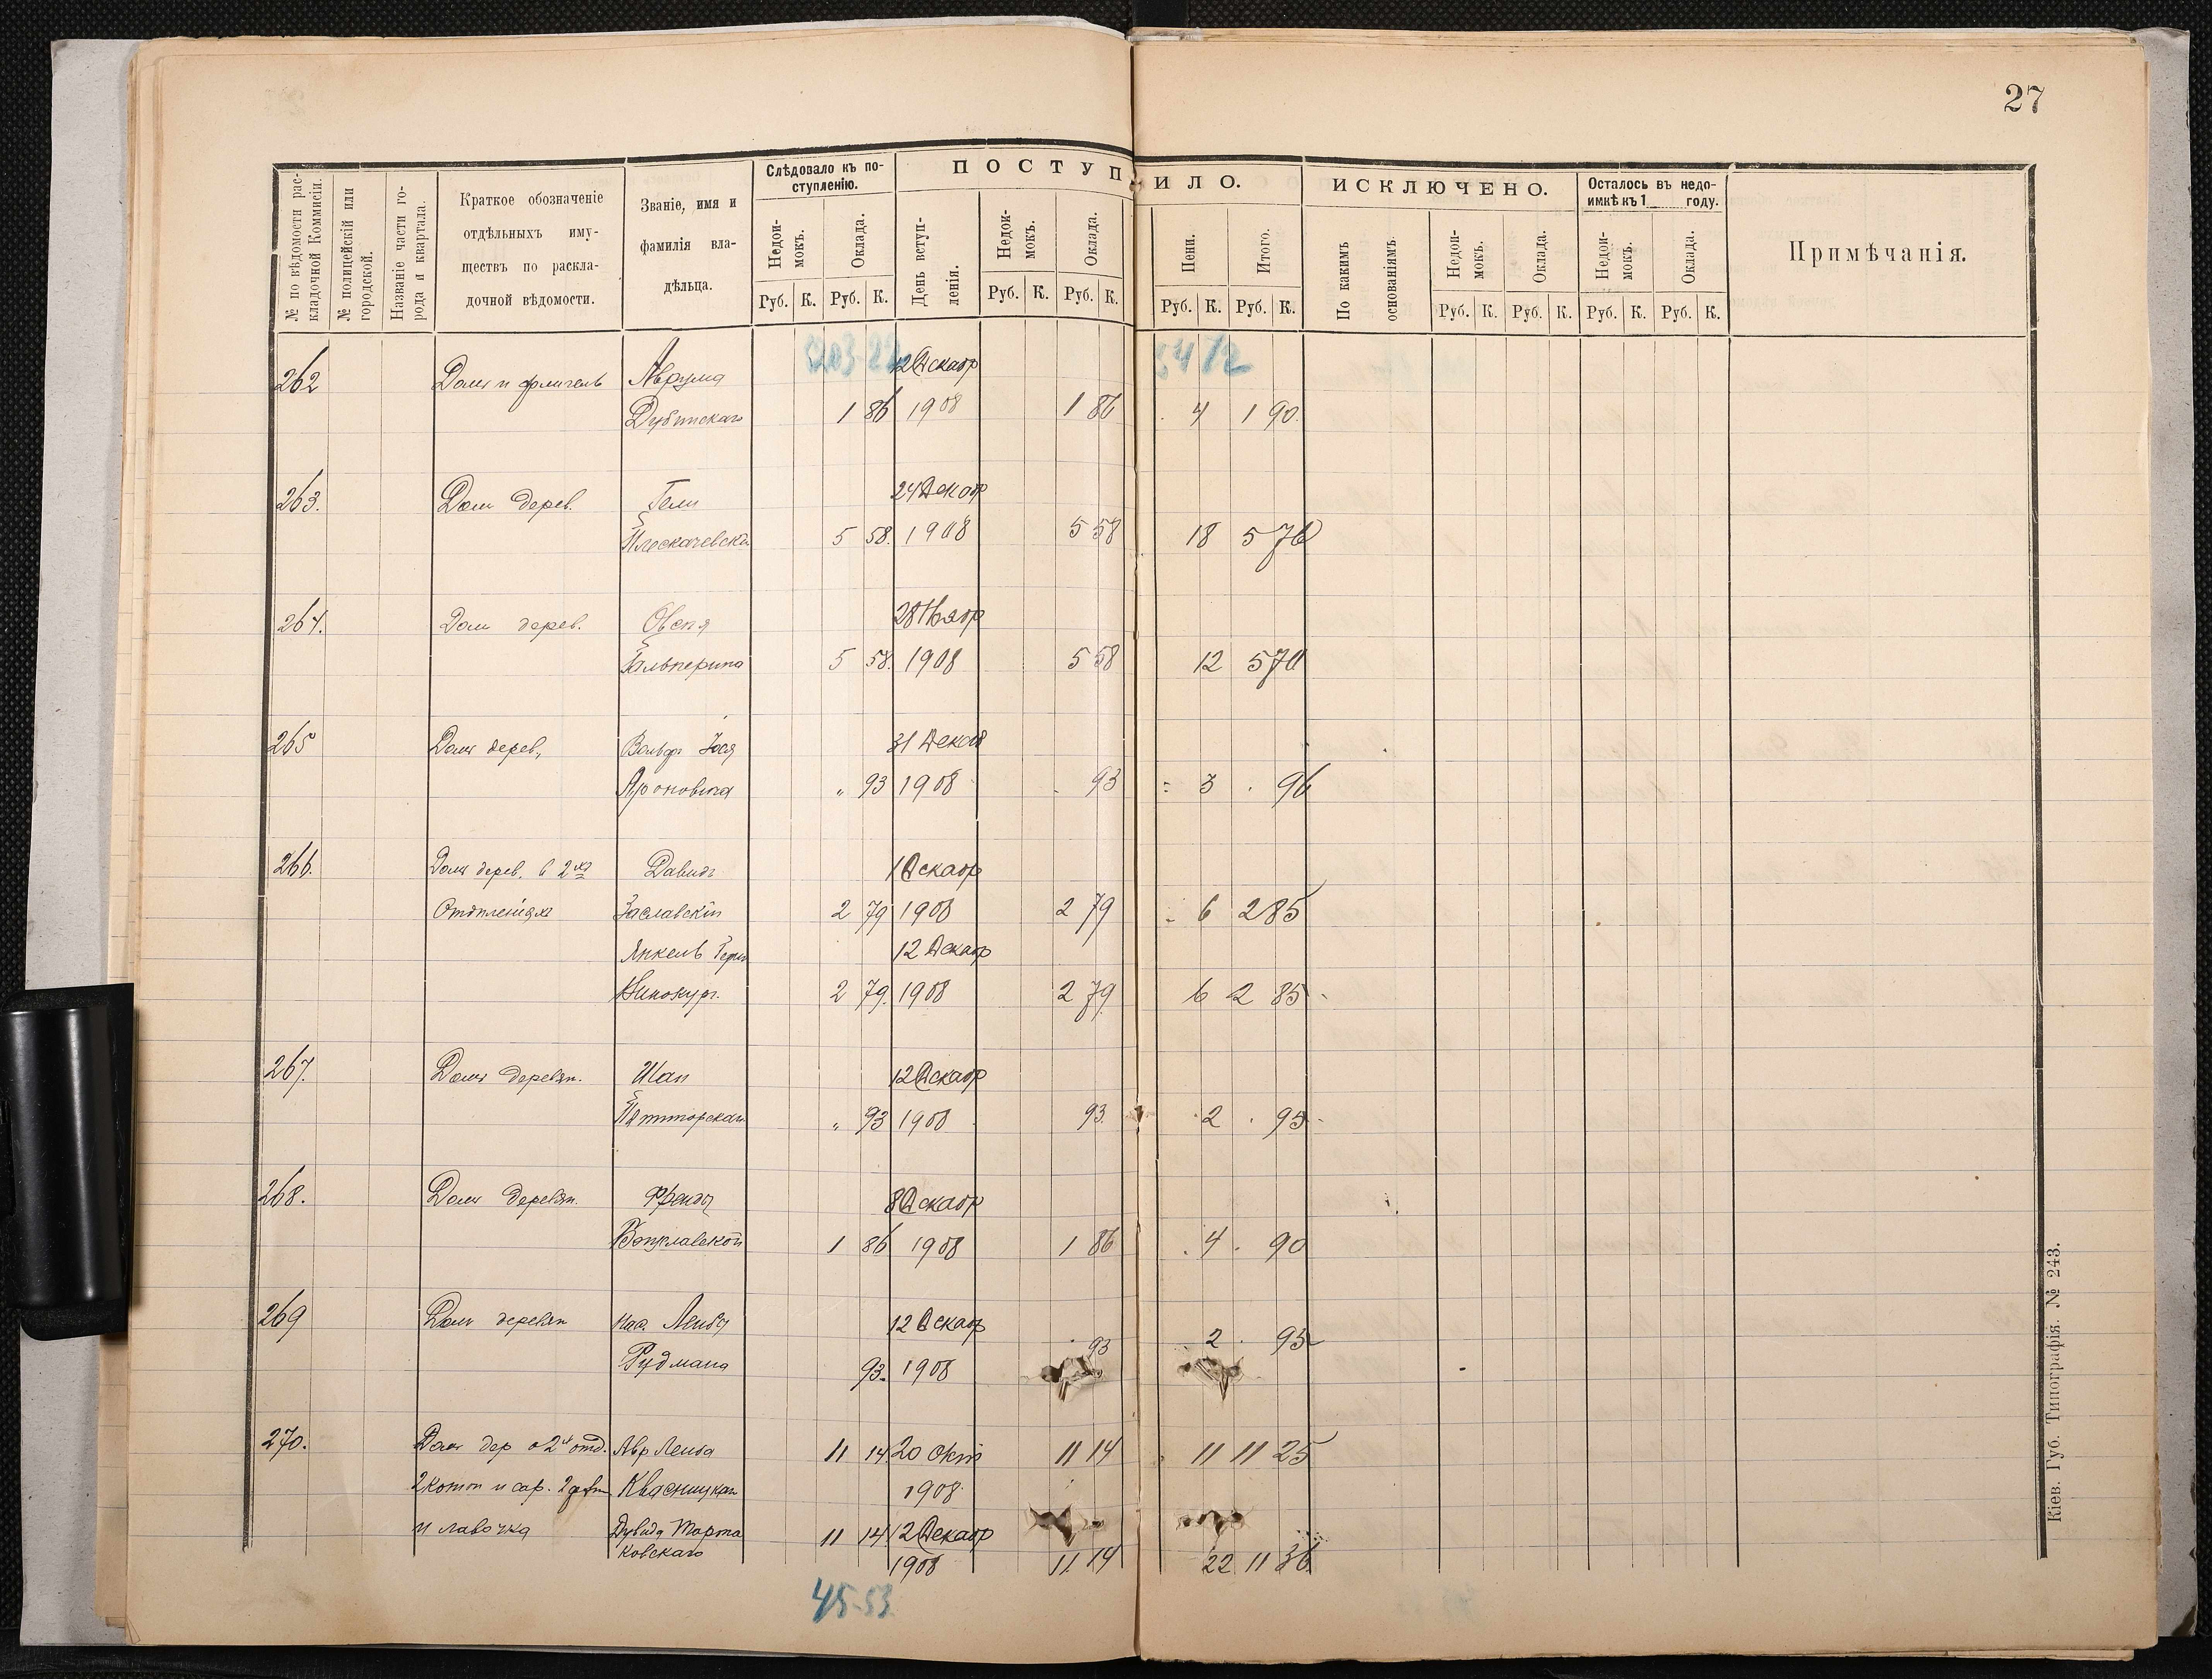 27
№ по вѣдомости раскладочной Коммисіи.
№ полицейскій или городской.
Названіе части города и квартала.
Краткое обозначеніе отдѣльныхъ имуществъ по раскладочной вѣдомости.
Званіе, имя и фамилія владѣльца.
Слѣдовало къ поступленію.
Недоимокъ. Оклада.
Руб. К. Руб. К.
ПОСТУПИЛО.
День вступленія.
Недоимокъ. Оклада. Пени. Итого.
Руб. К. Руб. К. Руб. К. Руб. К.
ИСКЛЮЧЕНО.
По какимъ основаніямъ.
Недоимокъ. Оклада.
Руб. К. Руб. К.
Осталось въ недоимкѣ къ 1 году.
Недоимокъ. Оклада.
Руб. К. Руб. К.
Примѣчанія.
262 Домъ и флигель Аврума 12 Декабр
Дубинскаго 1 86 1908 1 86 4 1 90
263. Домъ дерев. 24 Декабр
5 58. 1908 5 58 18 5 76
264. Домъ дерев. Овсія 28 Ноябр
Гальперина 5 58. 1908 5 58 12 5 70
265 Домъ дерев. Вольфъ 31 Декаб
Ароновича " 93 1908 93 3 96
266. Домъ дерев. в 2хъ Давидъ 1 Декабр
Отдѣленіяхъ Заславскій 2 79 1908 2 79 6 2 85
Янкель 12 Декабр
Винокуръ. 2 79. 1908 2 79 6 2 85
267. Домъ деревян. 12 Декабр
" 93 1908 93. 2 95
268. Домъ деревян. 8 Декабр
1 86 1908 1 86 4 90
269 Домъ деревян Нас. Лейбы 12 Декабр
Рудмана 93. 1908 93 2 95
270. Домъ дер о 2х отд. Авр Лейба 11 14 20 Окт 11 14 11 11 25
и сар. Квасницкаг 1908
и лавочка Дувида Марта 11 14 12 Декабр
ковскаго 1908 11 14 22 11 36
45-53
Кіев. Губ. Типографія. № 243.